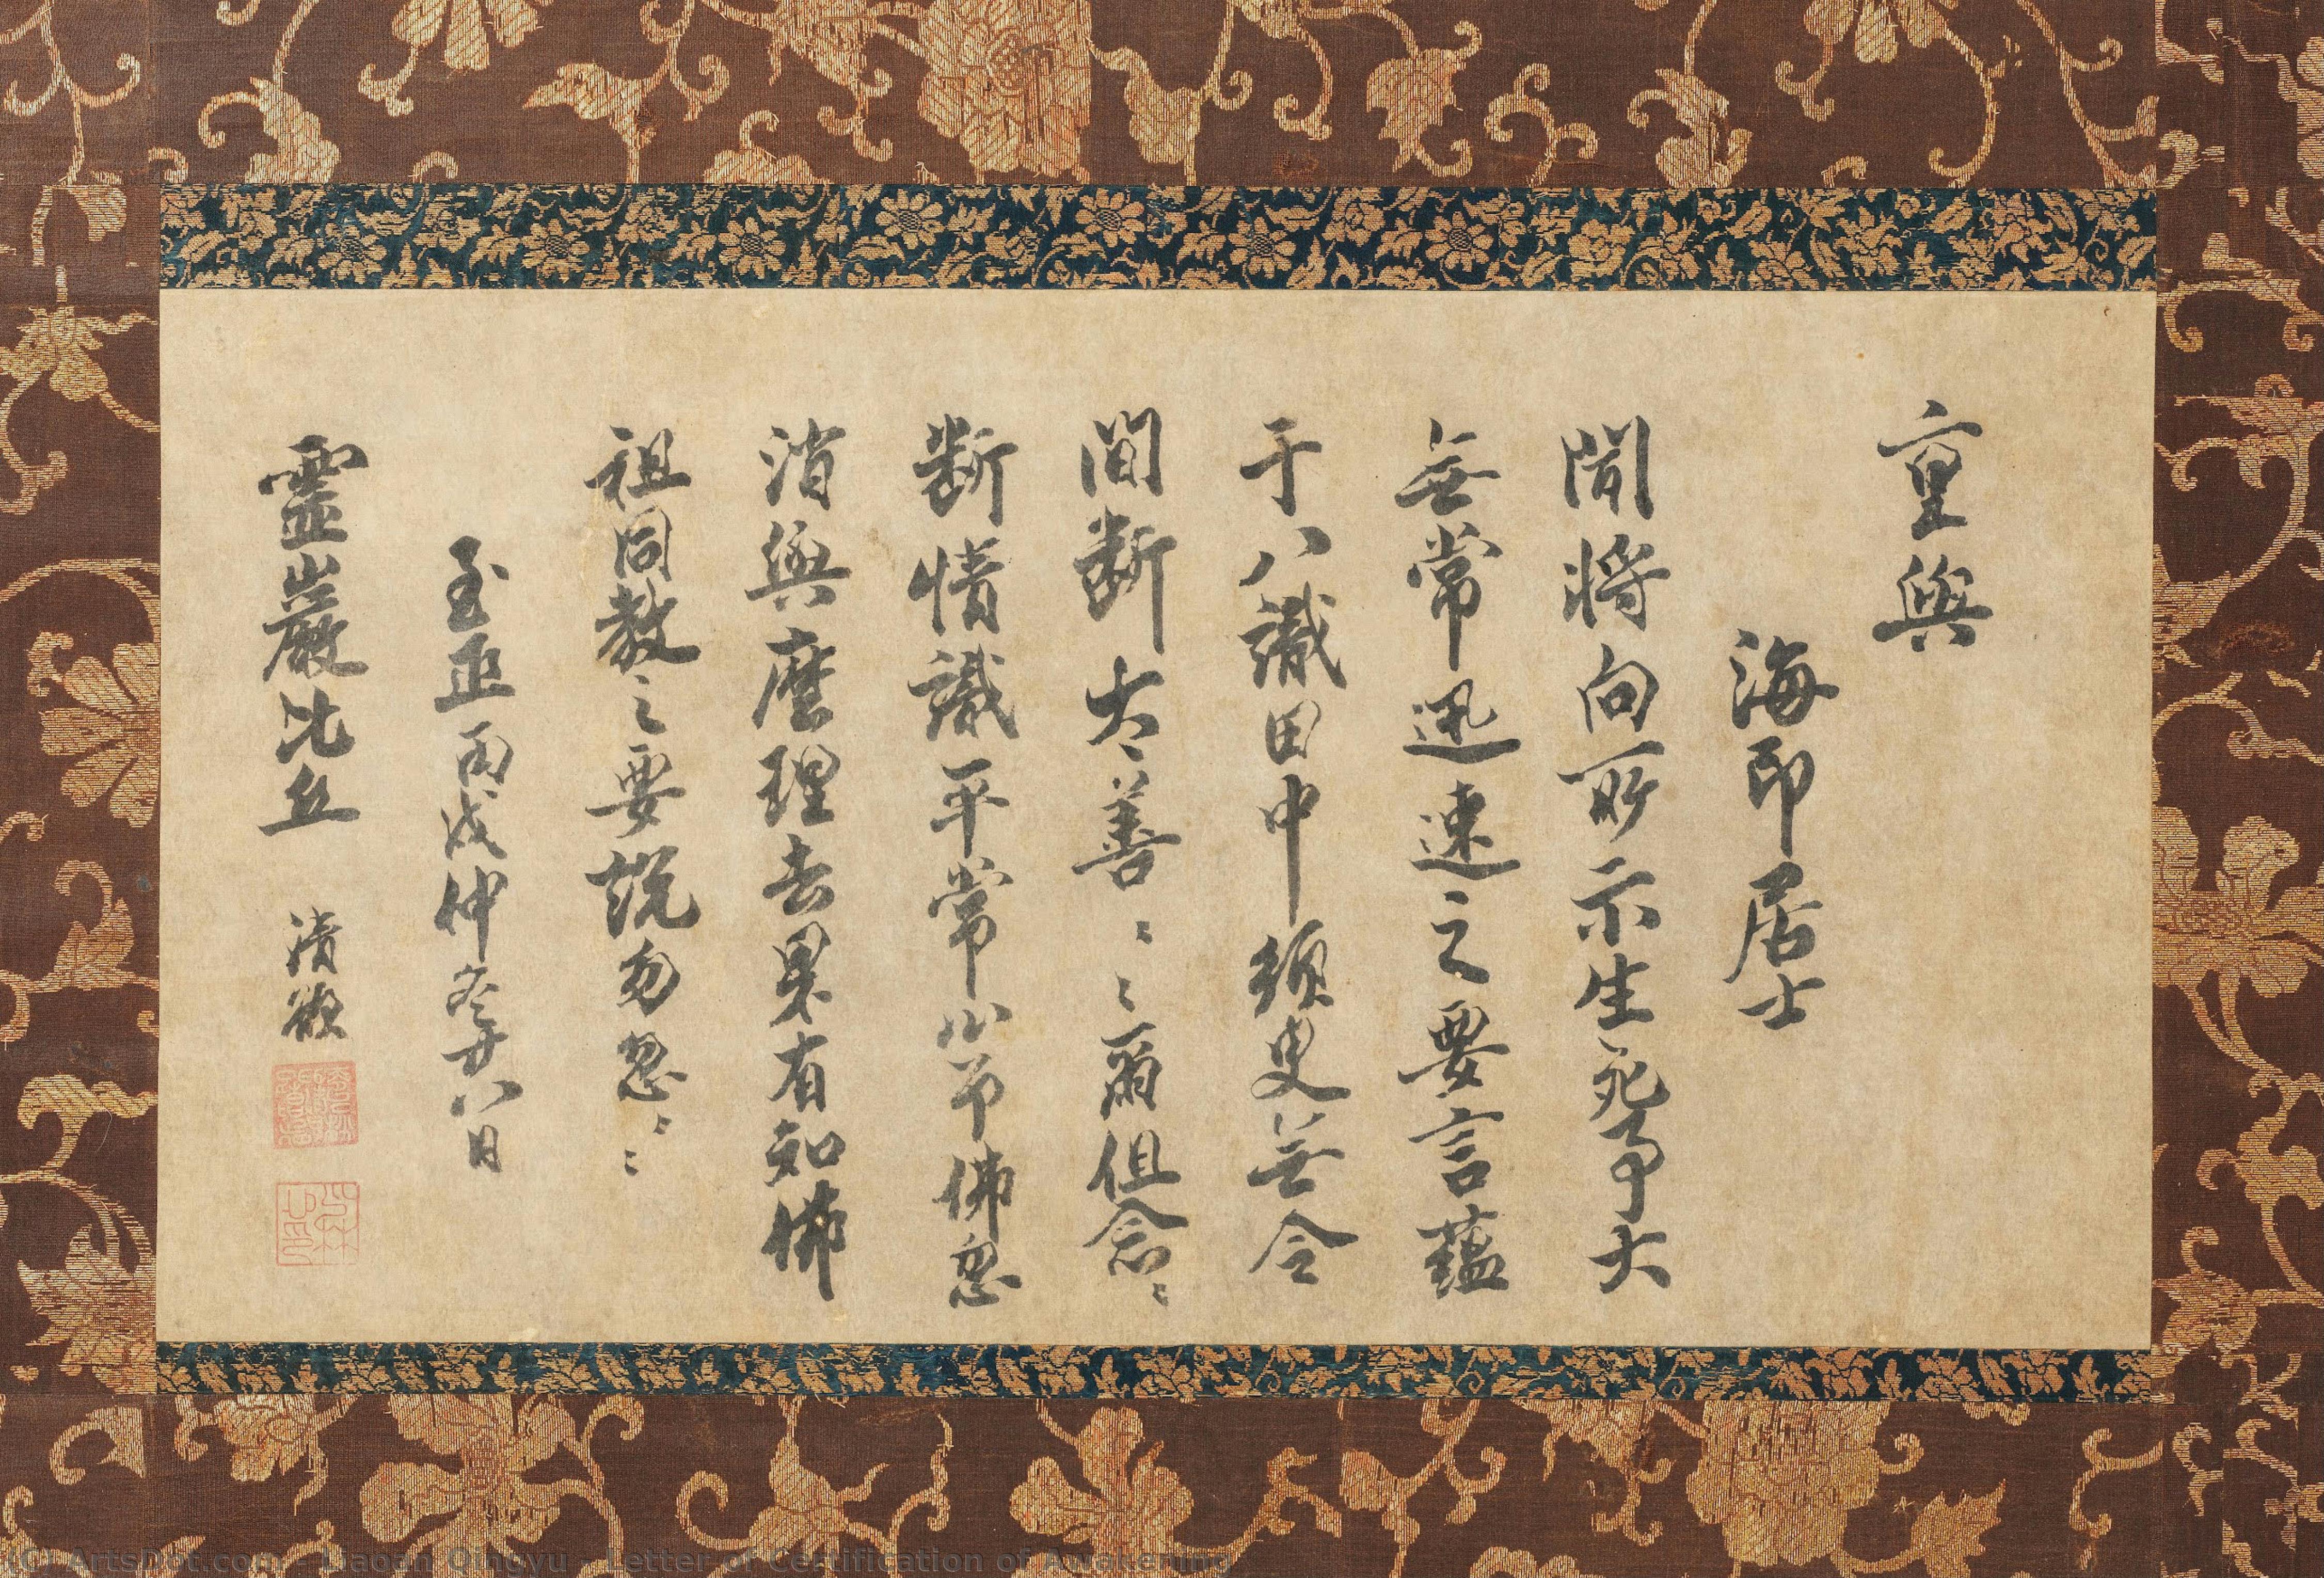 重與
海印居士
聞將向所示生死事大
無常迅速之要言蘊
于八識田中須臾無令
間斷大善〻〻爾但念〻
斷情識平常心即佛忽
消與麼理去果有如佛
祖同教之之要說勿忽〻〻
至正丙戌仲冬廿八日
靈巖比丘 清欲
(C) ArtsDot.com - Liaoan Qingyu - Letter of Certification of Awakening